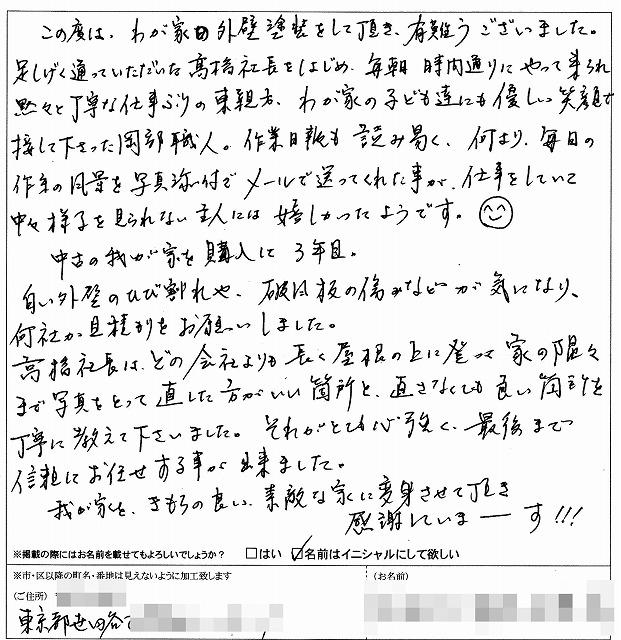 この度は、わが家の外壁塗装をして頂き、有難うございました。
足しげく通っていただいた高橋社長をはじめ、毎朝時間通りにやって来られ
黙々と丁寧な仕事ぶりの東親方、わが家の子ども達にも優しい笑顔で
接して下さった岡部職人。作業日報も読み易く、何より、毎日の
作業の風景を写真添付でメールで送ってくれた事が、仕事をしていて
中々様子を見られない主人には嬉しかったようです。
中古の我が家を購入して3年目。
白い外壁のひび割れや、破風板の傷みなどが気になり、
何社か見積りをお願いしました。
高橋社長は、どの会社よりも長く屋根の上に登って家の隅々
まで写真をとって直した方がいい箇所と、直さなくても良い箇所を
丁寧に教えて下さいました。それがとても心強く、最後まで
信頼してお任せする事が出来ました。
我が家を、きもちの良い、素敵な家に変身させて頂き
感謝していまーす!!!
※掲載の際にはお名前を載せてもよろしいでしょうか? □はい ☑名前はイニシャルにして欲しい
※市・区以降の町名・番地は見えないように加工致します
(ご住所) (お名前)
東京都世田谷